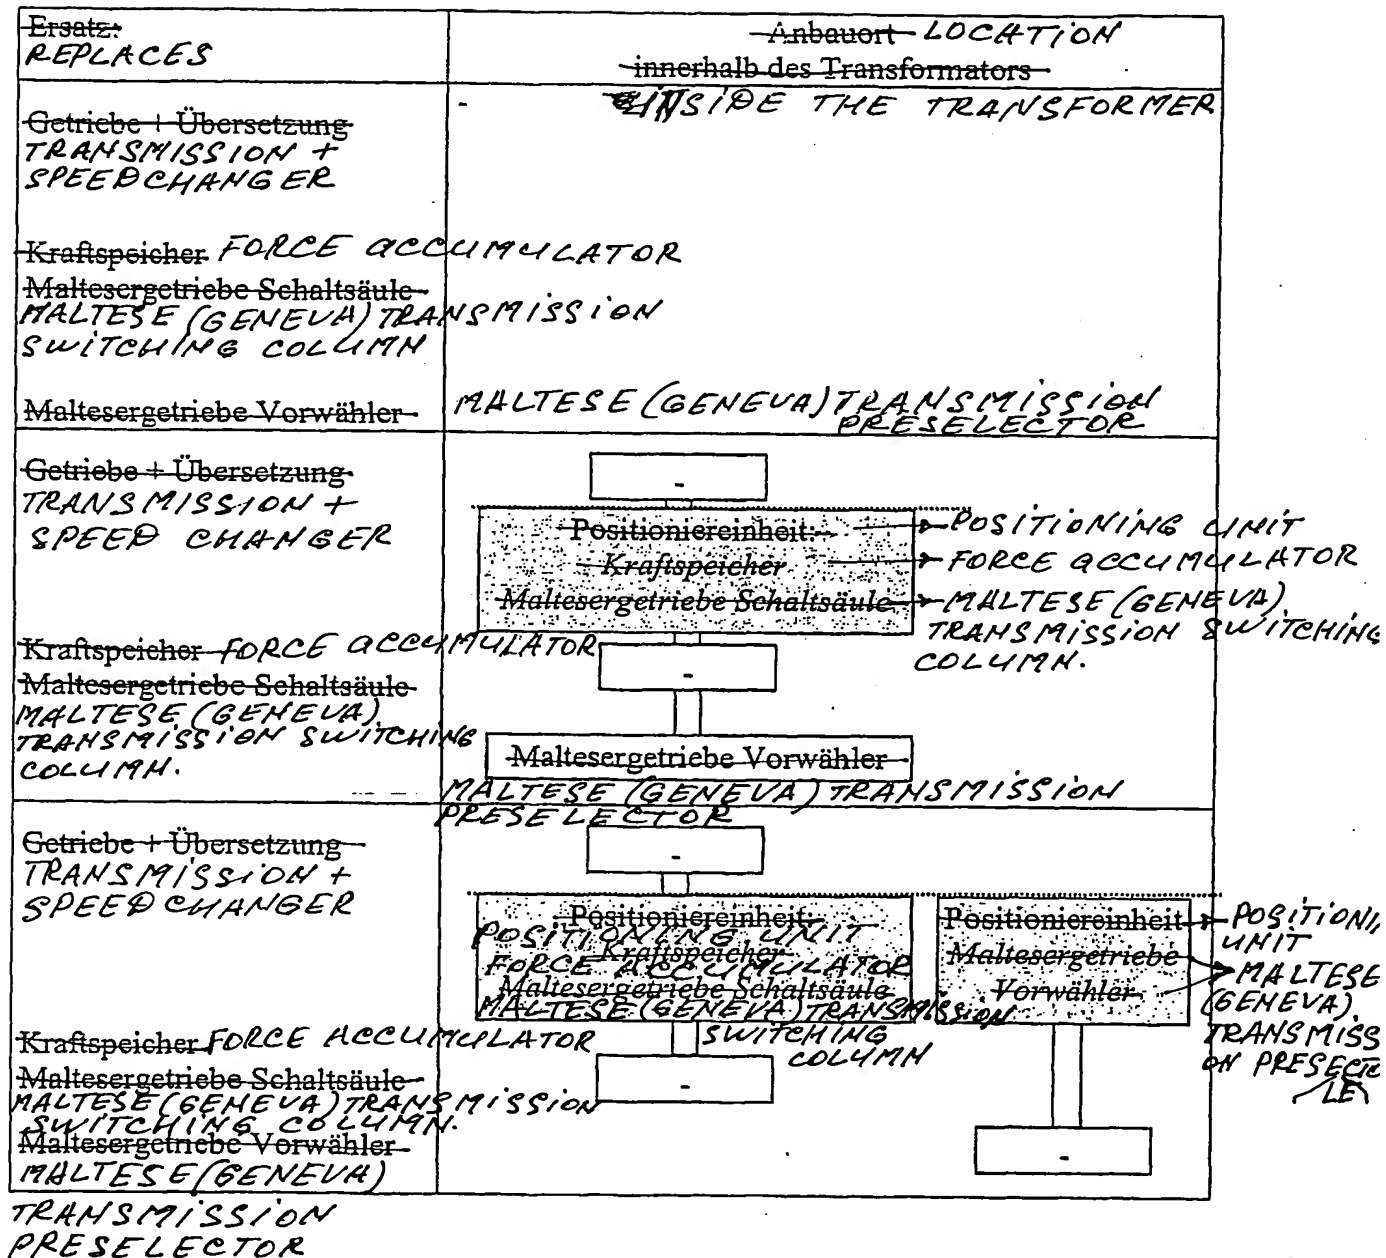 Ersatz:
REPLACES
Anbauort LOCATION
innerhalb des Transformators
INSIDE THE TRANSFORMER
-
Getriebe + Übersetzung
TRANSMISSION +
SPEEDCHANGER
Kraftspeicher FORCE ACCUMULATOR
Maltesergetriebe Schaltsäule
MALTESE (GENEVA) TRANSMISSION
SWITCHING COLUMN
Maltesergetriebe Vorwähler
MALTESE (GENEVA) TRANSMISSION
PRESELECTOR
Getriebe + Übersetzung
TRANSMISSION +
SPEED CHANGER
Kraftspeicher FORCE ACCUMULATOR
Maltesergetriebe Schaltsäule
MALTESE (GENEVA)
TRANSMISSION SWITCHING
COLUMN.
-
Positioniereinheit:
Kraftspeicher
Maltesergetriebe Schaltsäule
POSITIONING UNIT
FORCE ACCUMULATOR
MALTESE (GENEVA)
TRANSMISSION SWITCHING
COLUMN.
-
Maltesergetriebe Vorwähler
MALTESE (GENEVA) TRANSMISSION
PRESELECTOR
Getriebe + Übersetzung
TRANSMISSION +
SPEED CHANGER
Kraftspeicher FORCE ACCUMULATOR
Maltesergetriebe Schaltsäule
MALTESE (GENEVA) TRANSMISSION
SWITCHING COLUMN.
Maltesergetriebe Vorwähler
MALTESE (GENEVA)
TRANSMISSION
PRESELECTOR
-
Positioniereinheit:
POSITIONING UNIT
Kraftspeicher
FORCE ACCUMULATOR
Maltesergetriebe Schaltsäule
MALTESE (GENEVA) TRANSMISSION
SWITCHING
COLUMN
-
Positioniereinheit
Maltesergetriebe
Vorwähler
POSITIONI
UNIT
MALTESE
(GENEVA)
TRANSMISS
ON PRESECTO
LE
-